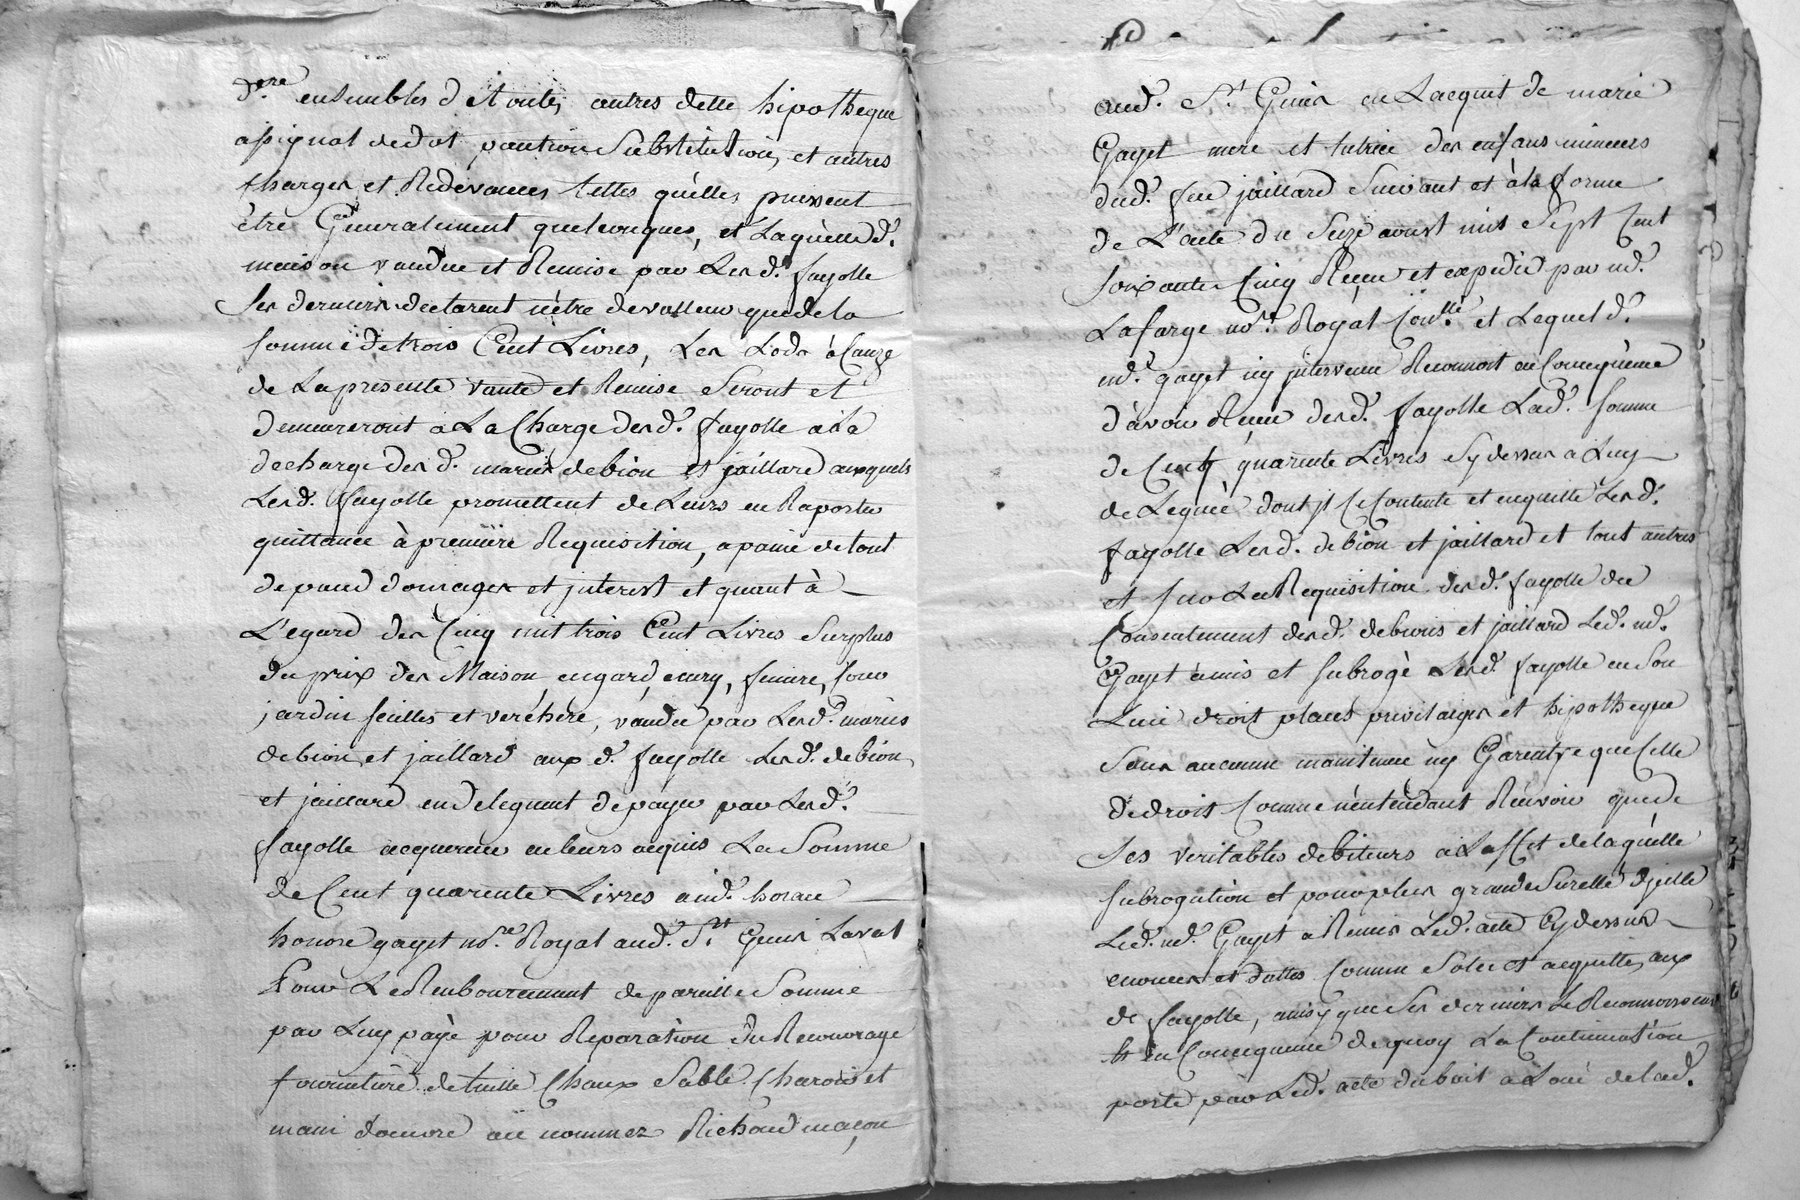 d.ere ensembles d'et toutes autres dette hipotheque
assignat de dot pantion Substitution, et autres
charges et Redévances telles quélles puissent
être Généralement quelconques, et Laquelle d.
maison vandue et Remise par Les d. fayolle
Ses derniers declarent nétre de valleur que de la
somme de trois Cent Livres, Les Lods à Cauze
de La presente vante et Remise Seront et
demeureront à La Charge des d. fayolle à La
decharge des d. maries debion et jaillard auxquels
Les d. fayolle promettent de Leurs en Raporter
quittance à première Requisition, a paine de tout
depand domages et jnterest et quant à
L'egard des Cinq mil trois Cent Livres Surplus
du prix des Maison engard, ecury, feniere, Cour
jardin seilles et verchere, vandu par Les d. maries
debion et jaillard aux d. fayolle Les d. debion
et jaillard en deleguent de payer par Les d.
fayolle acquereur en leurs acquis La Somme
de Cent quarente Livres à md. horace
honoré gayet no.re Royal aud. S.t Genis Laval
Pour Le Renbourcement de pareille Somme
par Luy payé pour Reparation du Recouvrage
fourniture de tuille Chaux Sable Charois et
main d'oeuvre au nommez Richoud maçon
aud. S.t Genis en Lacquit de marie
Gayet mere et tutrice des enfans mineurs
dud. feu jaillard Suivant et à la forme
de L'acte du Seize aoust mil Sept Cent
Soixante Cinq Receu et expedié par md.
Lafarge no.re Royal Con.lle et Lequel d.
md. gayet icy jntervenu Reconnoit en Conséquence
d'avoir Receu desd. fayolle Lad. somme
de Cent quarente Livres Cy dessus a Luy
deLeguée dont jl Ce Contente et en quitte Les d.
fayolle Les d. debion et jaillard et tout autres
et sur La Requisition des d. fayolle du
Consentement des d. debions et jaillard Led. md.
Gayet à mis et subrogé Les d. fayolle en Son
Lieu droit places privilaiges et hipotheque
Sans aucunne maintenue ny Garentye que Celle
de droit Comme n'entendant Recevoir que de
Ses veritables debiteurs à L'effet de laquelle
Subrogation et pour plus grande Surette d'jcelle
Led. md. Gayet a Remis Led. acte Cy dessus
enoncer et datte Comme Solu et acquitte, aux
d. fayolle, ainsy que Ses derniers Le Reconnoissent
et en Consequence de quoy La Continuation
porté par Led. acte du bail à Loué de lad.